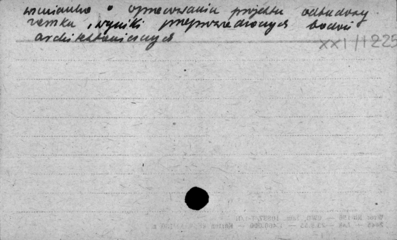 wzmianka o opracowaniu projektu odbudowy
zamku, wyniki przeprowadzonych badań
architektonicznych
XXI/1225